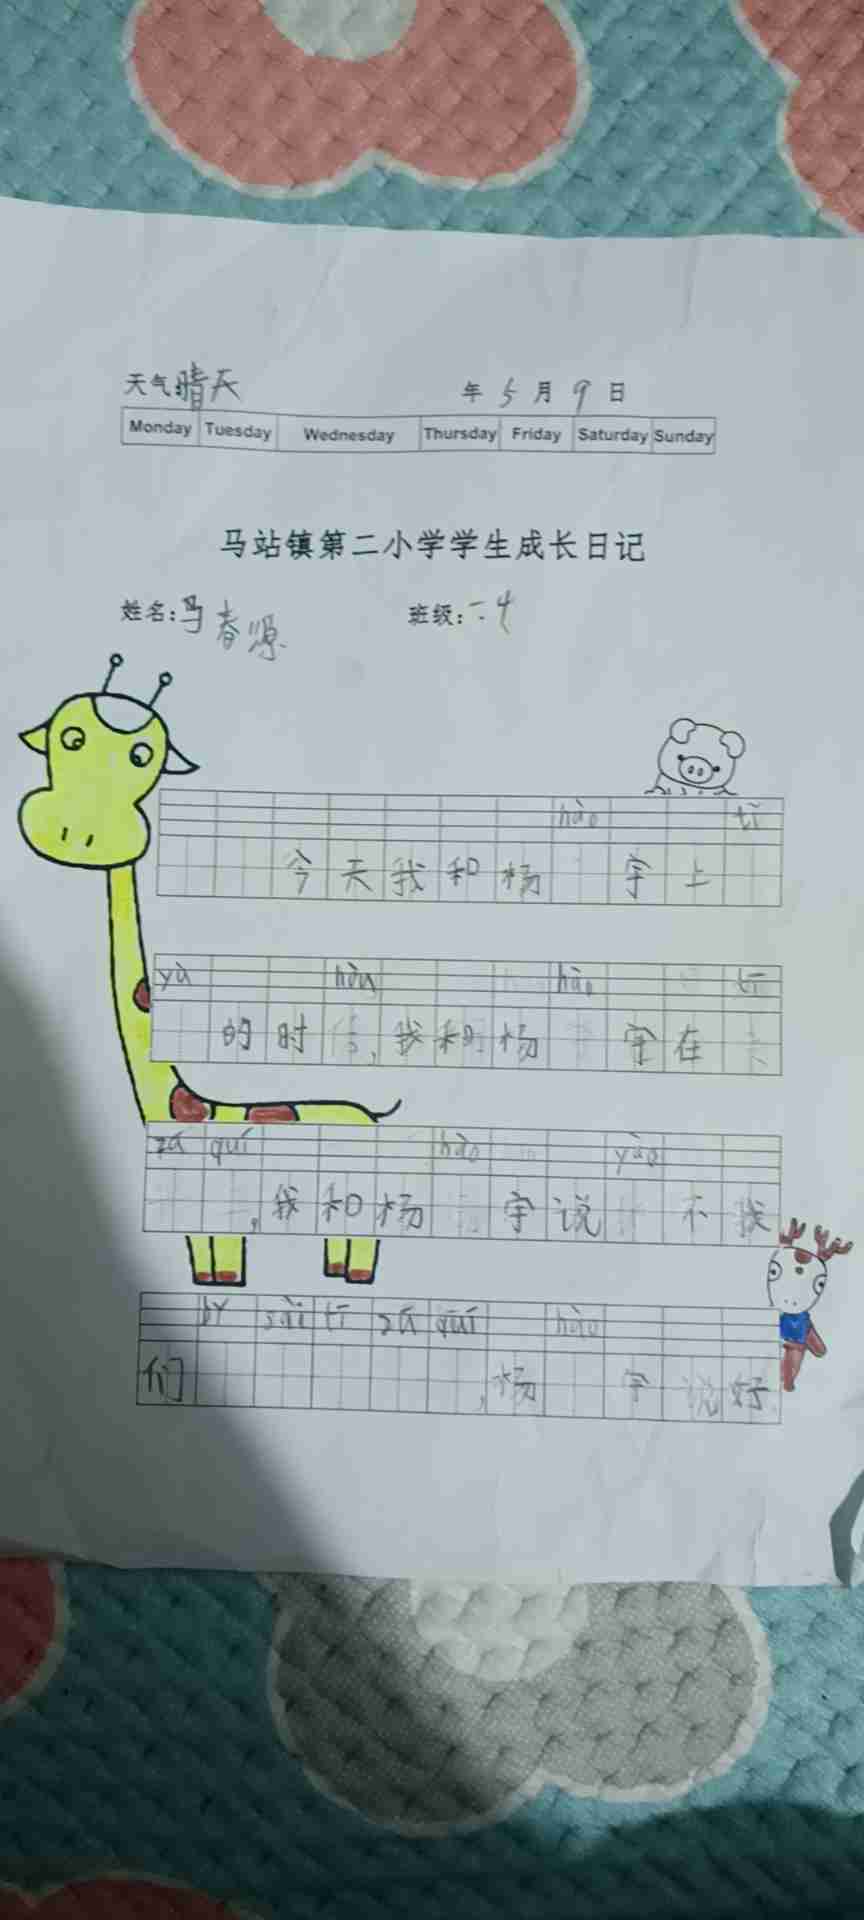 天气晴天 年 5 月 9 日
Monday Tuesday Wednesday Thursday Friday Saturday Sunday
马站镇第二小学学生成长日记
姓名:马春源 班级:一.4
hào tī
今天我和杨 宇上
yà hòu hào tī
的时 ,我和杨 宇在
zá quí hào yào
,我和杨 宇说 不找
bY sài tī zá quí hào
们 ,杨 宇说好